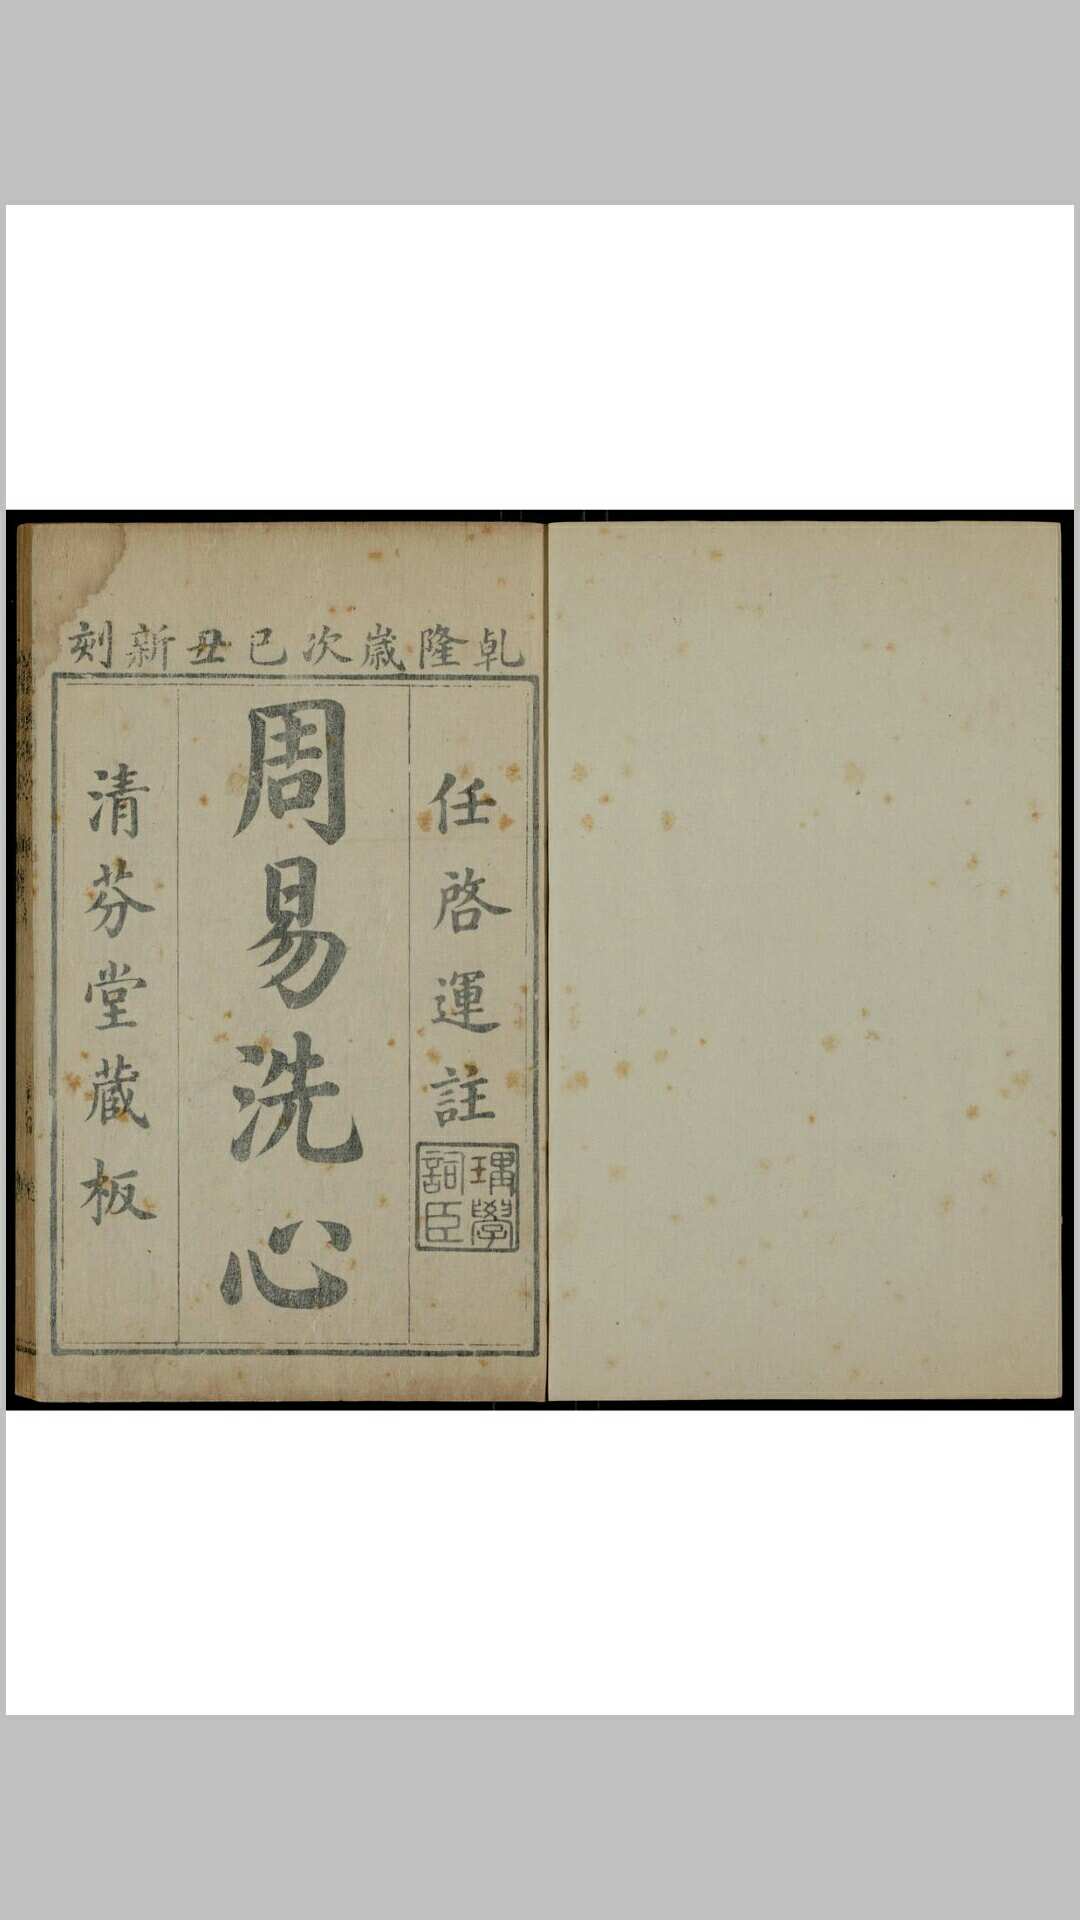 乹隆歲次己丑新刻
任啓運註
周易洗心
清芬堂藏板